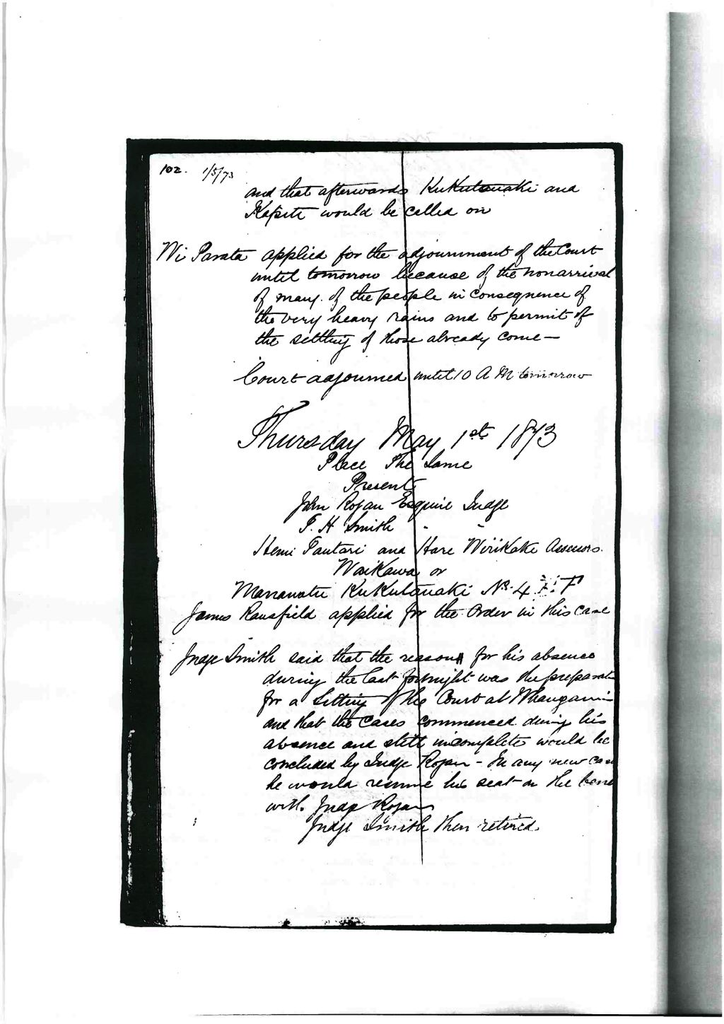 102. 1/5/73
and that afterwards Kukutauaki and
Kapiti would be called on
Wi Parata applied for the adjournment of the Court
until tomorrow because of the nonarrival
of many of the people in consequence of
the very heavy rains and to permit of
the settling of those already come —
Court adjourned until 10 A M tomorrow
Thursday May 1st 1873
Place The Same
Present
John Rogan Esquire Judge
T. H Smith " "
Hemi Tautari and Hare Wirikake Assessors.
Waikawa or
Manawatu Kukutauaki No 4
James Ransfield applied for the Order in this case
Judge Smith said that the reason for his absence
during the last fortnight was the preparation
for a Sitting of the Court at Whanganui
and that the Cases commenced during his
absence and still incomplete would be
concluded by Judge Rogan - In any new case
he would resume his seat on the
with Judge Rogan
Judge Smith then retired.